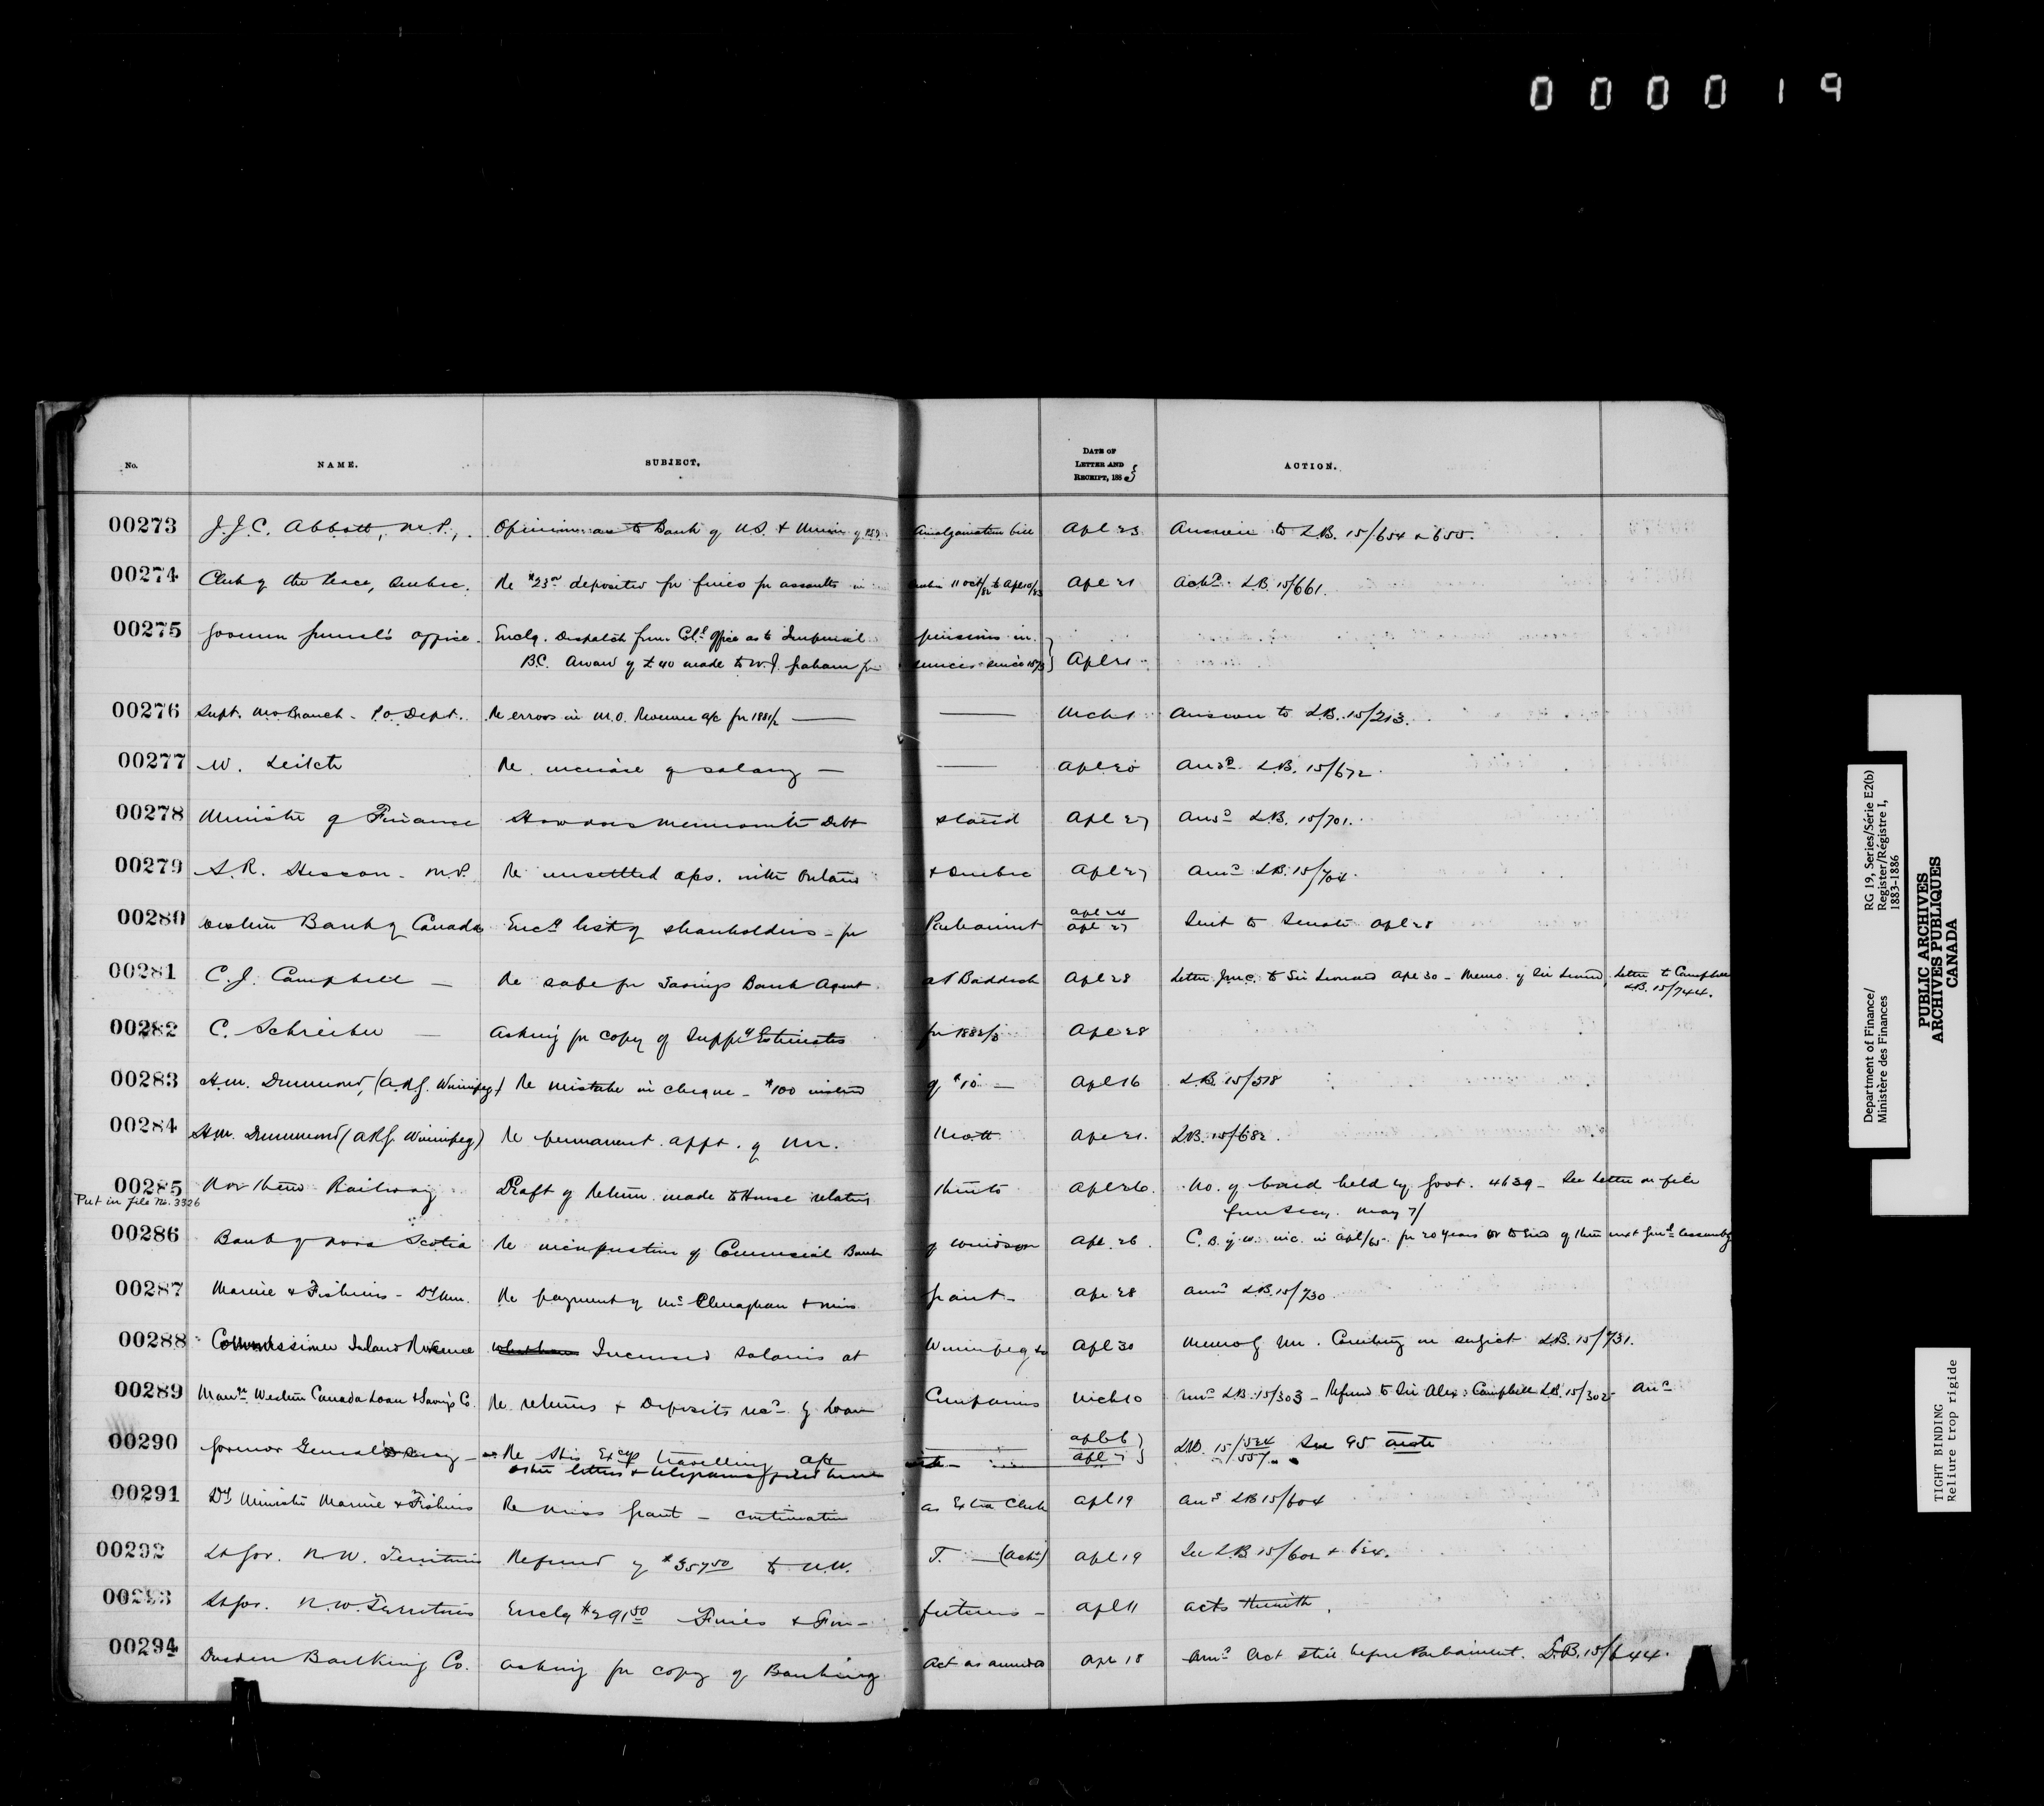 000019
No. NAME. SUBJECT. DATE OF LETTER AND RECEIPT, 188 ACTION.
00273 J.J.C. Abbott, M.P., Opinion as to Bank of U.S. & Union of Amalgamation bill Apl 23 Answer to L.B. 15/654 & 655.
00274 Clerk of the Peace, Quebec. Re $23 deposited for fines for assaults in Quebec 11 Oct/82 to Apl 10/83 Apl 21 Ackd. L.B. 15/661.
00275 Governor General's Office. Enclg. Dispatch from Coll Office as to Imperial pensions in
B.C. Award of £40 made to W.J. Graham for services Apl 21
00276 Supt. M.O. Branch - P.O. Dept. Re errors in M.O. Revenue a/c for 1881/2 — — Mch 1 Answer to L.B. 15/213.
00277 W. Leitch Re increase of salary — — Apl 20 Ansd L.B. 15/672.
00278 Minister of Finance Debt stand Apl 27 Ansd L.B. 15/701.
00279 S.R. Hesson - M.P. Re unsettled a/cs. with Ontario & Quebec Apl 27 Ansd L.B. 15/704.
00280 Western Bank of Canada Encg list of shareholders - for Parliament Apl 24 Apl 27 Sent to Senate Apl 28
00281 C.J. Campbell — Re safe for Savings Bank Agent at Baddeck Apl 28 Letter J.M.C. to Sir Leonard Apl 30 - Memo. of Sir Leonard, Letter to Campbell
L.B. 15/744.
00282 C. Schreiber — Asking for copy of Suppy Estimates for 1882/3 Apl 28
00283 H.M. Drummond, (A.R.G. Winnipeg) Re mistake in cheque - $100 instead of $10 — Apl 16 L.B. 15/578
00284 H.M. Drummond (A.R.G. Winnipeg) Re permanent appt. of Mr. Mott Apl 21. L.B. 15/682.
00285 Northern Railway Draft of Return made to House relating thereto Apl 26. No. of bond held by Govt. 4639 - See Letter on file
Put in file No. 3326
from Secy. May 7/
00286 Bank of Nova Scotia Re incorporation of Commercial Bank of Windsor Apl 26. C.B. of W. inc. in Apl/65 for 20 years or to End of then next Genl Assembly
00287 Marine & Fisheries - Dy Min. Re payment of McClenaghan & Miss Grant - Apl 28 Ansd L.B. 15/730
00288 Commissioner Inland Revenue Increased Salaries at Winnipeg &c Apl 30 Memo of Mr. Courtney on subject L.B. 15/731.
00289 Managr Western Canada Loan & Savings Co. Re returns & Deposits recd by Loan Companies Mch 10 Ansd L.B. 15/303 - Refund to Sir Alex: Campbell L.B. 15/302 - Ansd
00290 Governor General's Secy — Re His Excys travelling a/c — Apl 6 Apl 7 L.B. 15/524 See 95 ante
other letters & telegrams 15/557
00291 Dy Minister Marine & Fisheries Re Miss Grant - continuation as Extra Clerk Apl 19 Ansd L.B. 15/604
00292 Lt Gov. N.W. Territories Refund of $357.50 to N.W. T. — (Ackd) Apl 19 See L.B. 15/602 & 624.
00293 Lt Gov. N.W. Territories Enclg $291.50 Fines & For- feitures - Apl 11 Acts therewith.
00294 Dresden Banking Co. Asking for copy of Banking Act as amended Apl 18 Ansd Act still before Parliament. L.B. 15/644.
Department of Finance/
Ministère des Finances
RG 19, Series/Série E2(b)
Register/Régistre 1,
1883-1886
PUBLIC ARCHIVES
ARCHIVES PUBLIQUES
CANADA
TIGHT BINDING
Reliure trop rigide